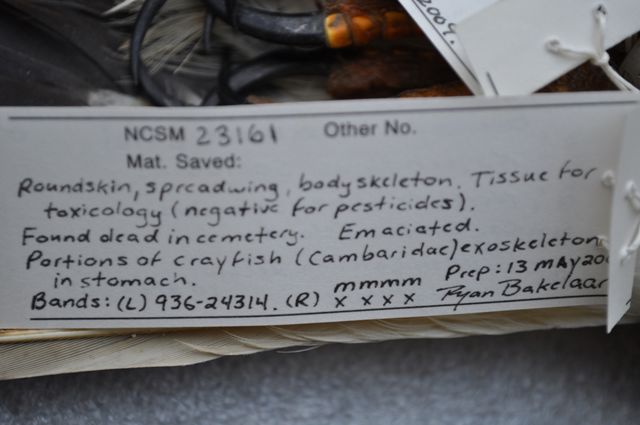 2009.
NCSM 23161 Other No.
Mat. Saved:
Roundskin, spreadwing, body skeleton. Tissue for
toxicology (negative for pesticides).
Found dead in cemetery. Emaciated.
Portions of crayfish (Cambaridae) exoskeleton
in stomach. Prep: 13 MAY 20
Bands: (L) 936-24314. (R) mmmm
xxxx Ryan Bakelaar